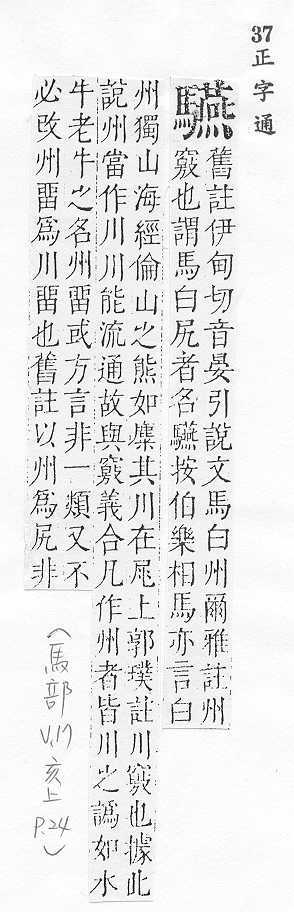 37
正字通
驠
舊註伊甸切音晏引說文馬白州爾雅註州
竅也謂馬白尻者名驠按伯樂相馬亦言白
州獨山海經倫山之熊如麋其川在尾上郭璞註川竅也據此
說州當作川川能流通故與竅義合凡作州者皆川之譌如水
牛老牛之名州畱或方言非一類又不
必改州畱爲川畱也舊註以州爲尻非
(馬部
V.17
亥上
P.24)